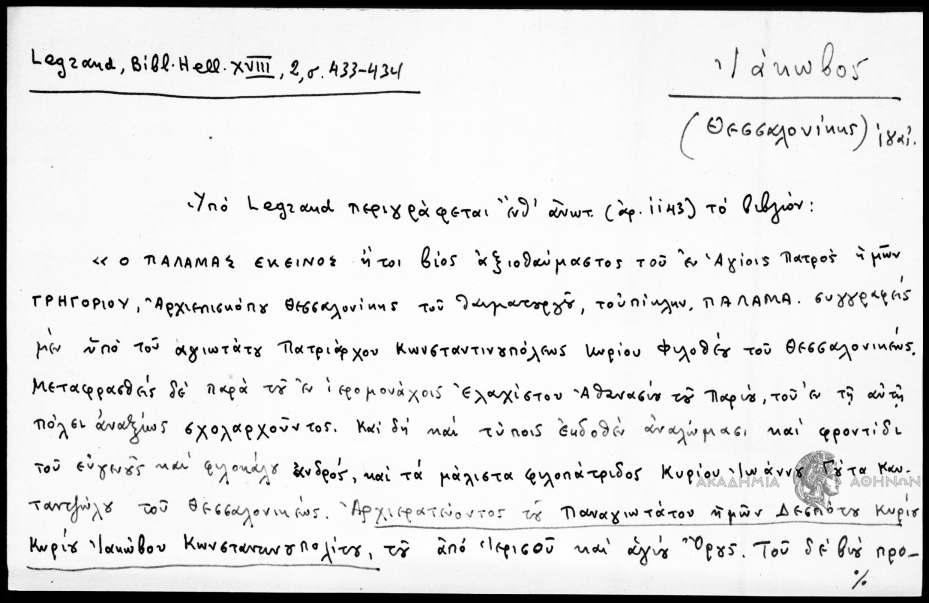 Legrand, Bibl. Hell. XVIII, 2, σ. 433-434
Ἰάκωβος
(Θεσσαλονίκης)
Ὑπό Legrand περιγράφεται ἔνθ' ἀνωτ. (ἀρ. 1143) τό βιβλίον:
« Ο ΠΑΛΑΜΑΣ ΕΚΕΙΝΟΣ ἤτοι βίος ἀξιοθαύμαστος τοῦ ἐν Ἁγίοις Πατρός ἡμῶν
ΓΡΗΓΟΡΙΟΥ, Ἀρχιεπισκόπου Θεσσαλονίκης τοῦ θαυματουργοῦ, τοὐπίκλην, ΠΑΛΑΜΑ. συγγραφείς
μέν ὑπό τοῦ ἁγιωτάτου Πατριάρχου Κωνσταντινουπόλεως Κυρίου Φιλοθέου τοῦ Θεσσαλονικέως.
Μεταφρασθείς δέ παρά τοῦ ἐν ἱερομονάχοις Ἐλαχίστου Ἀθανασίου τοῦ Παρίου, τοῦ ἐν τῇ αὐτῇ
πόλει ἀναξίως σχολαρχοῦντος. Καί δή καί τύποις ἐκδοθέν ἀναλώμασι καί φροντίδι
τοῦ εὐγενοῦς καί φιλοκάλου ἀνδρός, καί τά μάλιστα φιλοπάτριδος Κυρίου Ἰωάννου Γούτα Καυ-
ταντζόγλου τοῦ Θεσσαλονικέως. Ἀρχιερατεύοντος τοῦ Παναγιωτάτου ἡμῶν Δεσπότου Κυρίου
Κυρίου Ἰακώβου Κωνσταντινουπολίτου, τοῦ ἀπό Ἱερισσοῦ καί ἁγίου Ὄρους. Τοῦ δέ βίου προ-
%
ΑΚΑΔΗΜΙΑ ΑΘΗΝΩΝ